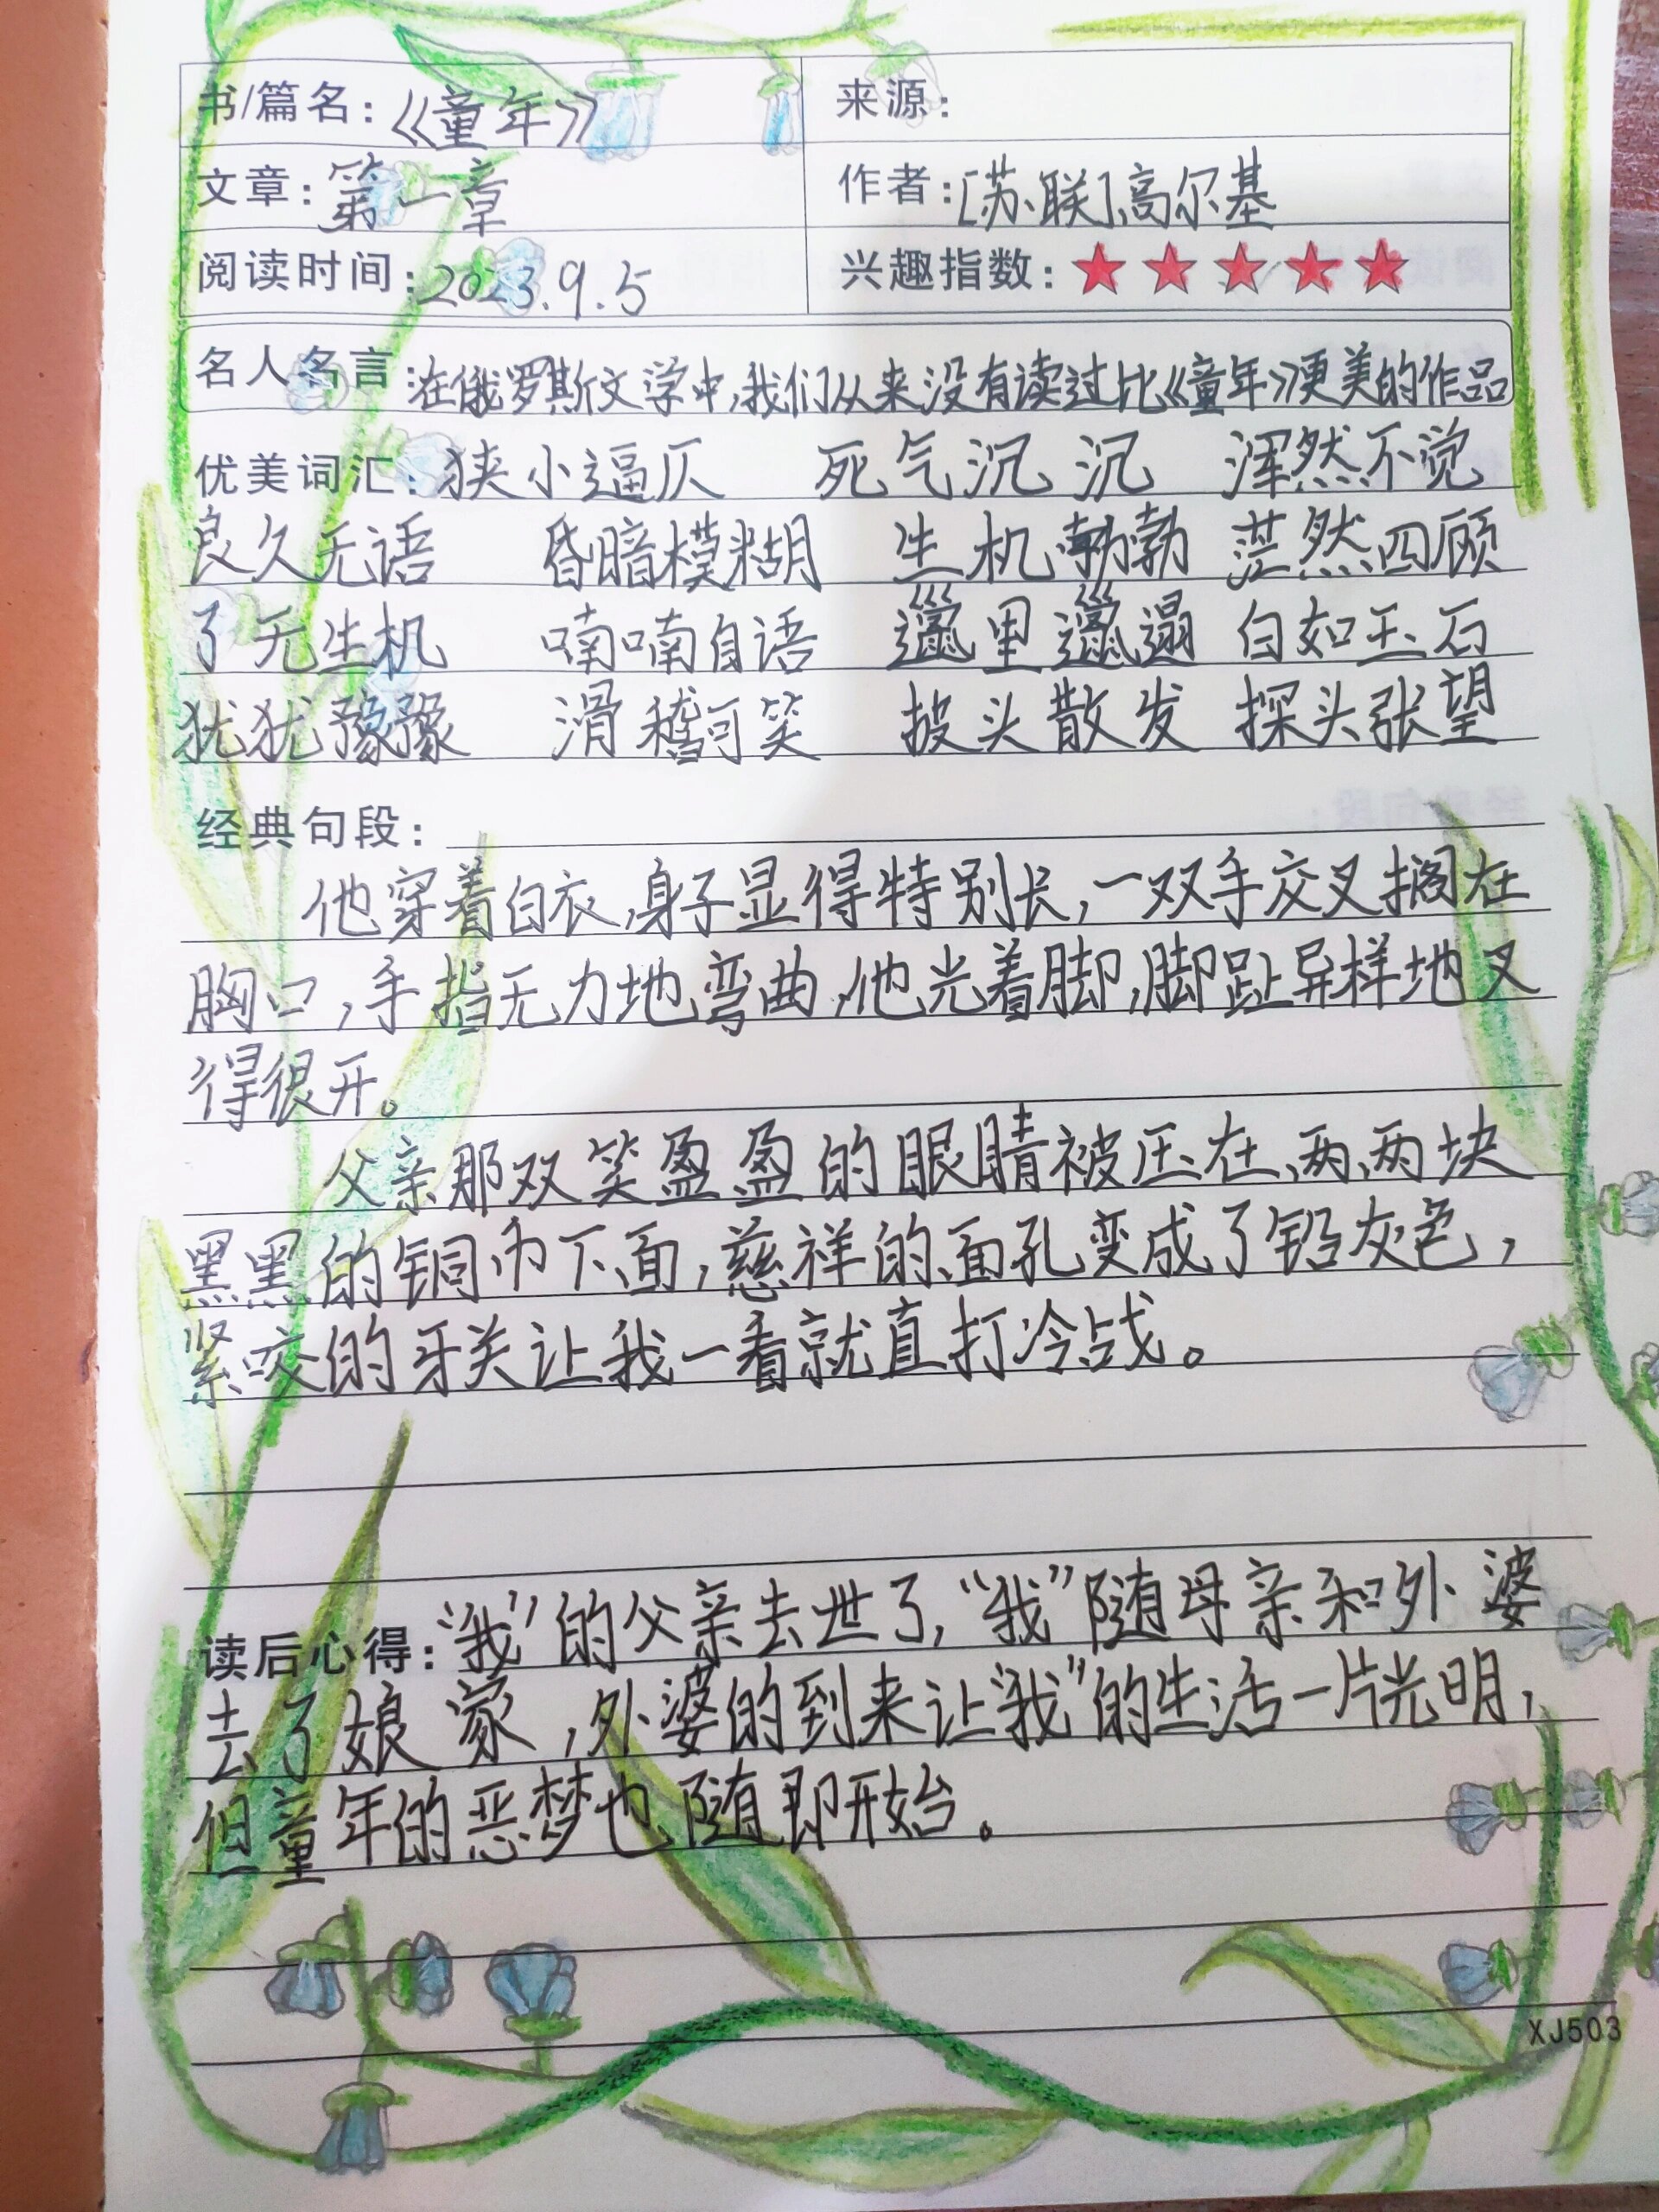 书/篇名：《童年》 来源：
文章：第一章 作者：[苏联]高尔基
阅读时间：2023.9.5 兴趣指数：★★★★★
名人名言：在俄罗斯文学中，我们从来没有读过比《童年》更美的作品
优美词汇：狭小逼仄 死气沉沉 浑然不觉
良久无语 昏暗模糊 生机勃勃 茫然四顾
了无生机 喃喃自语 邋里邋遢 白如玉石
犹犹豫豫 滑稽可笑 披头散发 探头张望
经典句段：
他穿着白衣，身子显得特别长，一双手交叉搁在
胸口，手指无力地弯曲，他光着脚，脚趾异样地叉
得很开。
父亲那双笑盈盈的眼睛被压在两两块
黑黑的铜币下面，慈祥的面孔变成了铅灰色，
紧咬的牙关让我一看就直打冷战。
读后心得：“我”的父亲去世了，“我”随母亲和外婆
去了娘家，外婆的到来让“我”的生活一片光明，
但童年的恶梦也随即开始。
XJ503